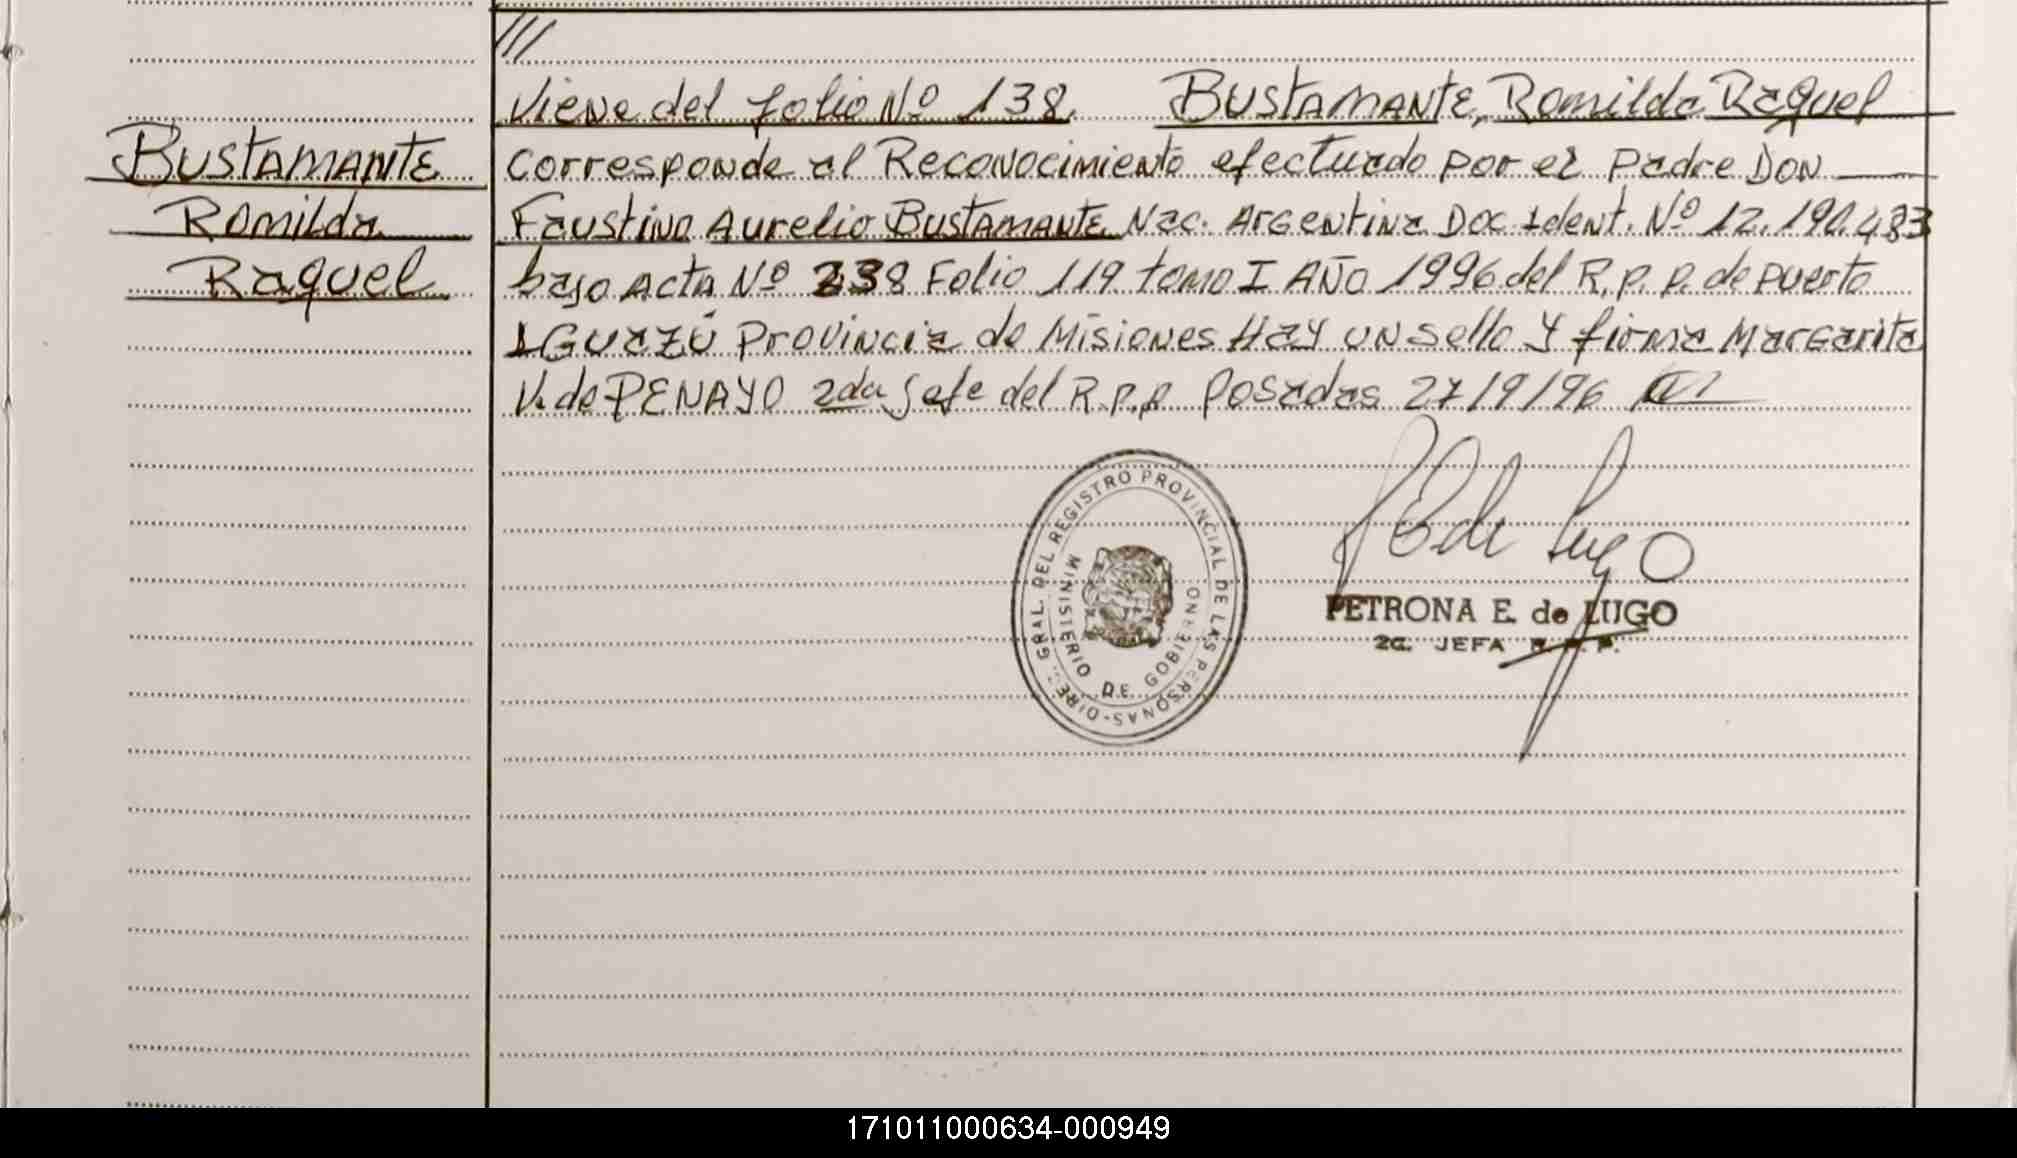 ///
Viene del folio Nº 138. BUSTAMANTE, Romilda Raquel
BUSTAMANTE
Romilda
Raquel
corresponde al Reconocimiento efectuado por el padre DON
Faustino Aurelio BUSTAMANTE Nac. Argentina Doc Ident. Nº 12.190.483
bajo Acta Nº 238 Folio 119 tomo I AÑO 1996 del R.P.P. de puerto
IGUAZÚ Provincia de Misiones Hay un sello y firma Margarita
V. de PENAYO 2da Jefe del R.P.P. Posadas 27/9/96
DIREC. GRAL. DEL REGISTRO PROVINCIAL DE LAS PERSONAS
MINISTERIO DE GOBIERNO
PETRONA E. de LUGO
2a. JEFA R.P.P.
171011000634-000949